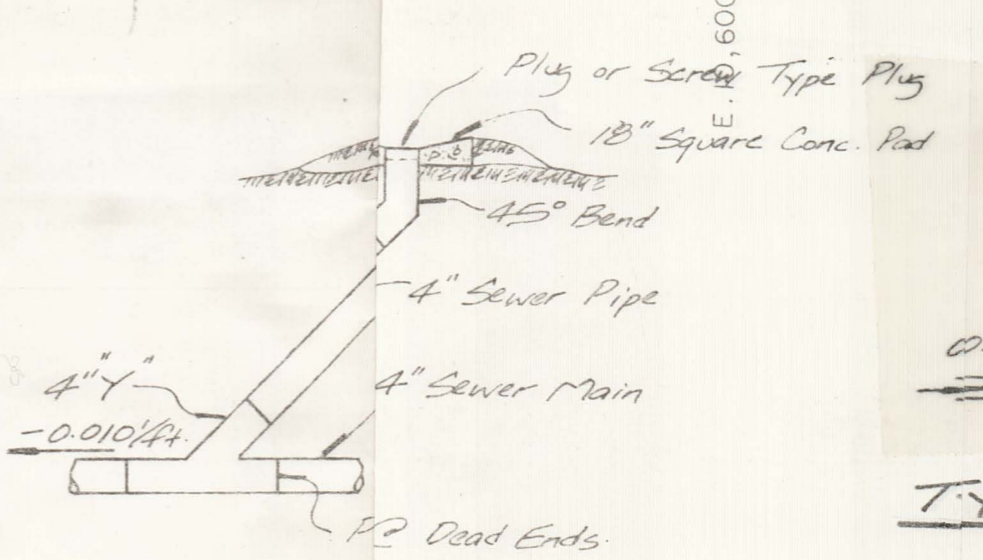 E. , 600
Plug or Screw Type Plug
18" Square Conc. Pad
45° Bend
4" Sewer Pipe
4" "Y"
4" Sewer Main
-0.010'/ft.
Dead Ends.